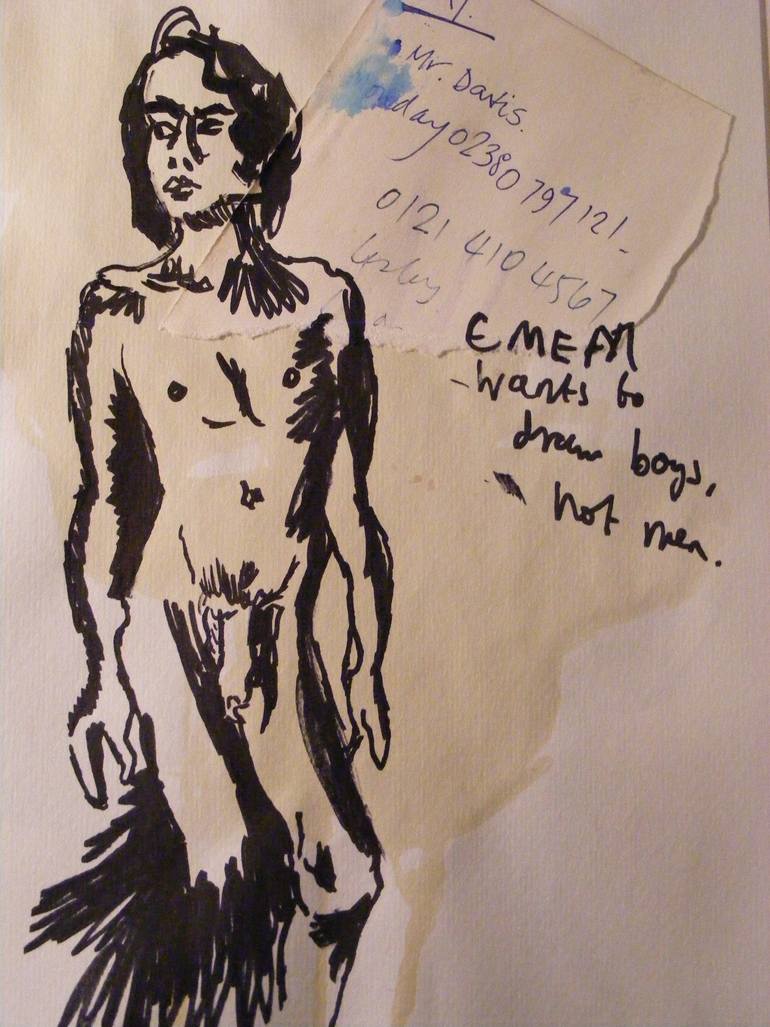 Mr. Davis.
02380 797121
0121 410 4567
EMEM
- wants to
draw boys,
not men.